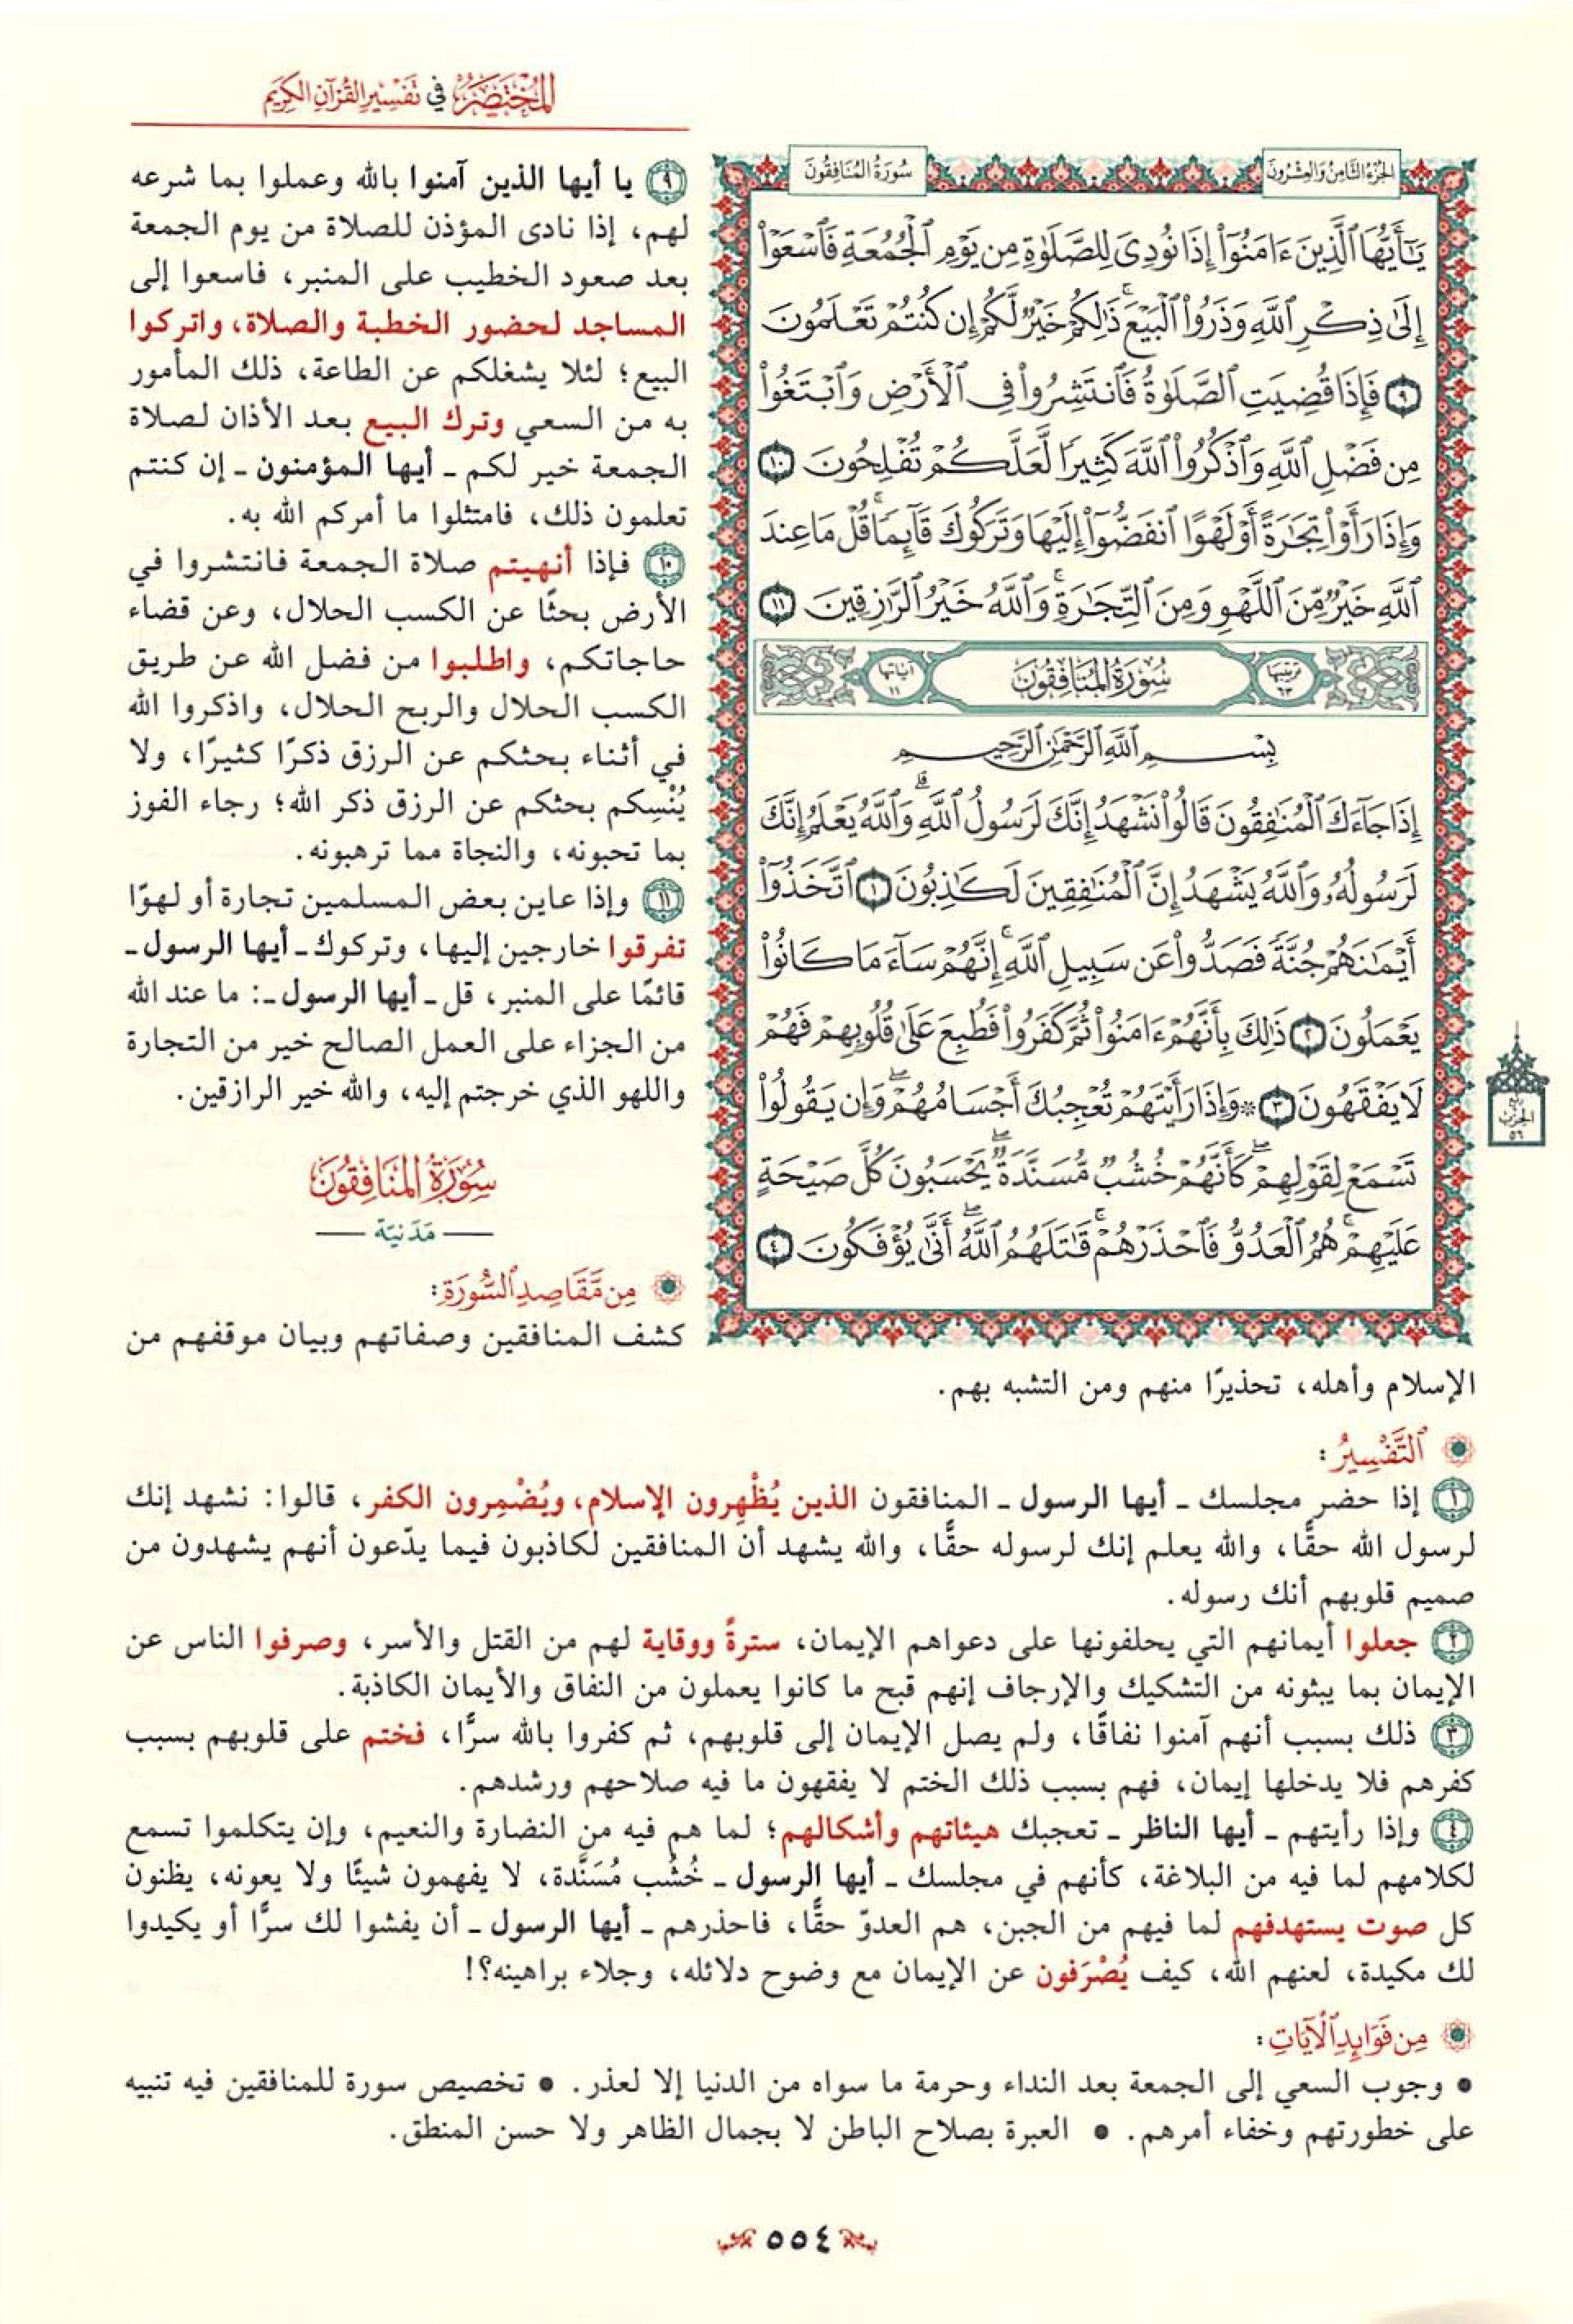 المختصر في تفسير القرآن الكريم
الجزء الثامن والعشرون
سورة المنافقون
يَٰٓأَيُّهَا ٱلَّذِينَ ءَامَنُوٓاْ إِذَا نُودِيَ لِلصَّلَوٰةِ مِن يَوۡمِ ٱلۡجُمُعَةِ فَٱسۡعَوۡاْ
إِلَىٰ ذِكۡرِ ٱللَّهِ وَذَرُواْ ٱلۡبَيۡعَۚ ذَٰلِكُمۡ خَيۡرٞ لَّكُمۡ إِن كُنتُمۡ تَعۡلَمُونَ
٩ فَإِذَا قُضِيَتِ ٱلصَّلَوٰةُ فَٱنتَشِرُواْ فِي ٱلۡأَرۡضِ وَٱبۡتَغُواْ
مِن فَضۡلِ ٱللَّهِ وَٱذۡكُرُواْ ٱللَّهَ كَثِيرٗا لَّعَلَّكُمۡ تُفۡلِحُونَ ١٠
وَإِذَا رَأَوۡاْ تِجَٰرَةً أَوۡ لَهۡوًا ٱنفَضُّوٓاْ إِلَيۡهَا وَتَرَكُوكَ قَآئِمٗاۚ قُلۡ مَا عِندَ
ٱللَّهِ خَيۡرٞ مِّنَ ٱللَّهۡوِ وَمِنَ ٱلتِّجَٰرَةِۚ وَٱللَّهُ خَيۡرُ ٱلرَّٰزِقِينَ ١١
ترتيبها ٦٣ سورة المنافقون آياتها ١١
بِسۡمِ ٱللَّهِ ٱلرَّحۡمَٰنِ ٱلرَّحِيمِ
إِذَا جَآءَكَ ٱلۡمُنَٰفِقُونَ قَالُواْ نَشۡهَدُ إِنَّكَ لَرَسُولُ ٱللَّهِۗ وَٱللَّهُ يَعۡلَمُ إِنَّكَ
لَرَسُولُهُۥ وَٱللَّهُ يَشۡهَدُ إِنَّ ٱلۡمُنَٰفِقِينَ لَكَٰذِبُونَ ١ ٱتَّخَذُوٓاْ
أَيۡمَٰنَهُمۡ جُنَّةٗ فَصَدُّواْ عَن سَبِيلِ ٱللَّهِۚ إِنَّهُمۡ سَآءَ مَا كَانُواْ
يَعۡمَلُونَ ٢ ذَٰلِكَ بِأَنَّهُمۡ ءَامَنُواْ ثُمَّ كَفَرُواْ فَطُبِعَ عَلَىٰ قُلُوبِهِمۡ فَهُمۡ
لَا يَفۡقَهُونَ ٣ ۞وَإِذَا رَأَيۡتَهُمۡ تُعۡجِبُكَ أَجۡسَامُهُمۡۖ وَإِن يَقُولُواْ
تَسۡمَعۡ لِقَوۡلِهِمۡۖ كَأَنَّهُمۡ خُشُبٞ مُّسَنَّدَةٞۖ يَحۡسَبُونَ كُلَّ صَيۡحَةٍ
عَلَيۡهِمۡۚ هُمُ ٱلۡعَدُوُّ فَٱحۡذَرۡهُمۡۚ قَٰتَلَهُمُ ٱللَّهُۖ أَنَّىٰ يُؤۡفَكُونَ ٤
ربع
الحزب
٥٦
٩ يا أيها الذين آمنوا بالله وعملوا بما شرعه
لهم، إذا نادى المؤذن للصلاة من يوم الجمعة
بعد صعود الخطيب على المنبر، فاسعوا إلى
المساجد لحضور الخطبة والصلاة، واتركوا
البيع؛ لئلا يشغلكم عن الطاعة، ذلك المأمور
به من السعي وترك البيع بعد الأذان لصلاة
الجمعة خير لكم ـ أيها المؤمنون ـ إن كنتم
تعلمون ذلك، فامتثلوا ما أمركم الله به.
١٠ فإذا أنهيتم صلاة الجمعة فانتشروا في
الأرض بحثًا عن الكسب الحلال، وعن قضاء
حاجاتكم، واطلبوا من فضل الله عن طريق
الكسب الحلال والربح الحلال، واذكروا الله
في أثناء بحثكم عن الرزق ذكرًا كثيرًا، ولا
يُنْسِكم بحثكم عن الرزق ذكر الله؛ رجاء الفوز
بما تحبونه، والنجاة مما ترهبونه.
١١ وإذا عاين بعض المسلمين تجارة أو لهوًا
تفرقوا خارجين إليها، وتركوك ـ أيها الرسول ـ
قائمًا على المنبر، قل ـ أيها الرسول ـ: ما عند الله
من الجزاء على العمل الصالح خير من التجارة
واللهو الذي خرجتم إليه، والله خير الرازقين.
سورة المنافقون
— مدنية —
من مقاصد السورة:
كشف المنافقين وصفاتهم وبيان موقفهم من
الإسلام وأهله، تحذيرًا منهم ومن التشبه بهم.
التفسير:
١ إذا حضر مجلسك ـ أيها الرسول ـ المنافقون الذين يُظْهِرون الإسلام، ويُضْمِرون الكفر، قالوا: نشهد إنك
لرسول الله حقًّا، والله يعلم إنك لرسوله حقًّا، والله يشهد أن المنافقين لكاذبون فيما يدّعون أنهم يشهدون من
صميم قلوبهم أنك رسوله.
٢ جعلوا أيمانهم التي يحلفونها على دعواهم الإيمان، سترةً ووقاية لهم من القتل والأسر، وصرفوا الناس عن
الإيمان بما يبثونه من التشكيك والإرجاف إنهم قبح ما كانوا يعملون من النفاق والأيمان الكاذبة.
٣ ذلك بسبب أنهم آمنوا نفاقًا، ولم يصل الإيمان إلى قلوبهم، ثم كفروا بالله سرًّا، فختم على قلوبهم بسبب
كفرهم فلا يدخلها إيمان، فهم بسبب ذلك الختم لا يفقهون ما فيه صلاحهم ورشدهم.
٤ وإذا رأيتهم ـ أيها الناظر ـ تعجبك هيئاتهم وأشكالهم؛ لما هم فيه من النضارة والنعيم، وإن يتكلموا تسمع
لكلامهم لما فيه من البلاغة، كأنهم في مجلسك ـ أيها الرسول ـ خُشُب مُسَنَّدة، لا يفهمون شيئًا ولا يعونه، يظنون
كل صوت يستهدفهم لما فيهم من الجبن، هم العدوّ حقًّا، فاحذرهم ـ أيها الرسول ـ أن يفشوا لك سرًّا أو يكيدوا
لك مكيدة، لعنهم الله، كيف يُصْرَفون عن الإيمان مع وضوح دلائله، وجلاء براهينه؟!
من فوائد الآيات:
• وجوب السعي إلى الجمعة بعد النداء وحرمة ما سواه من الدنيا إلا لعذر. • تخصيص سورة للمنافقين فيه تنبيه
على خطورتهم وخفاء أمرهم. • العبرة بصلاح الباطن لا بجمال الظاهر ولا حسن المنطق.
٥٥٤